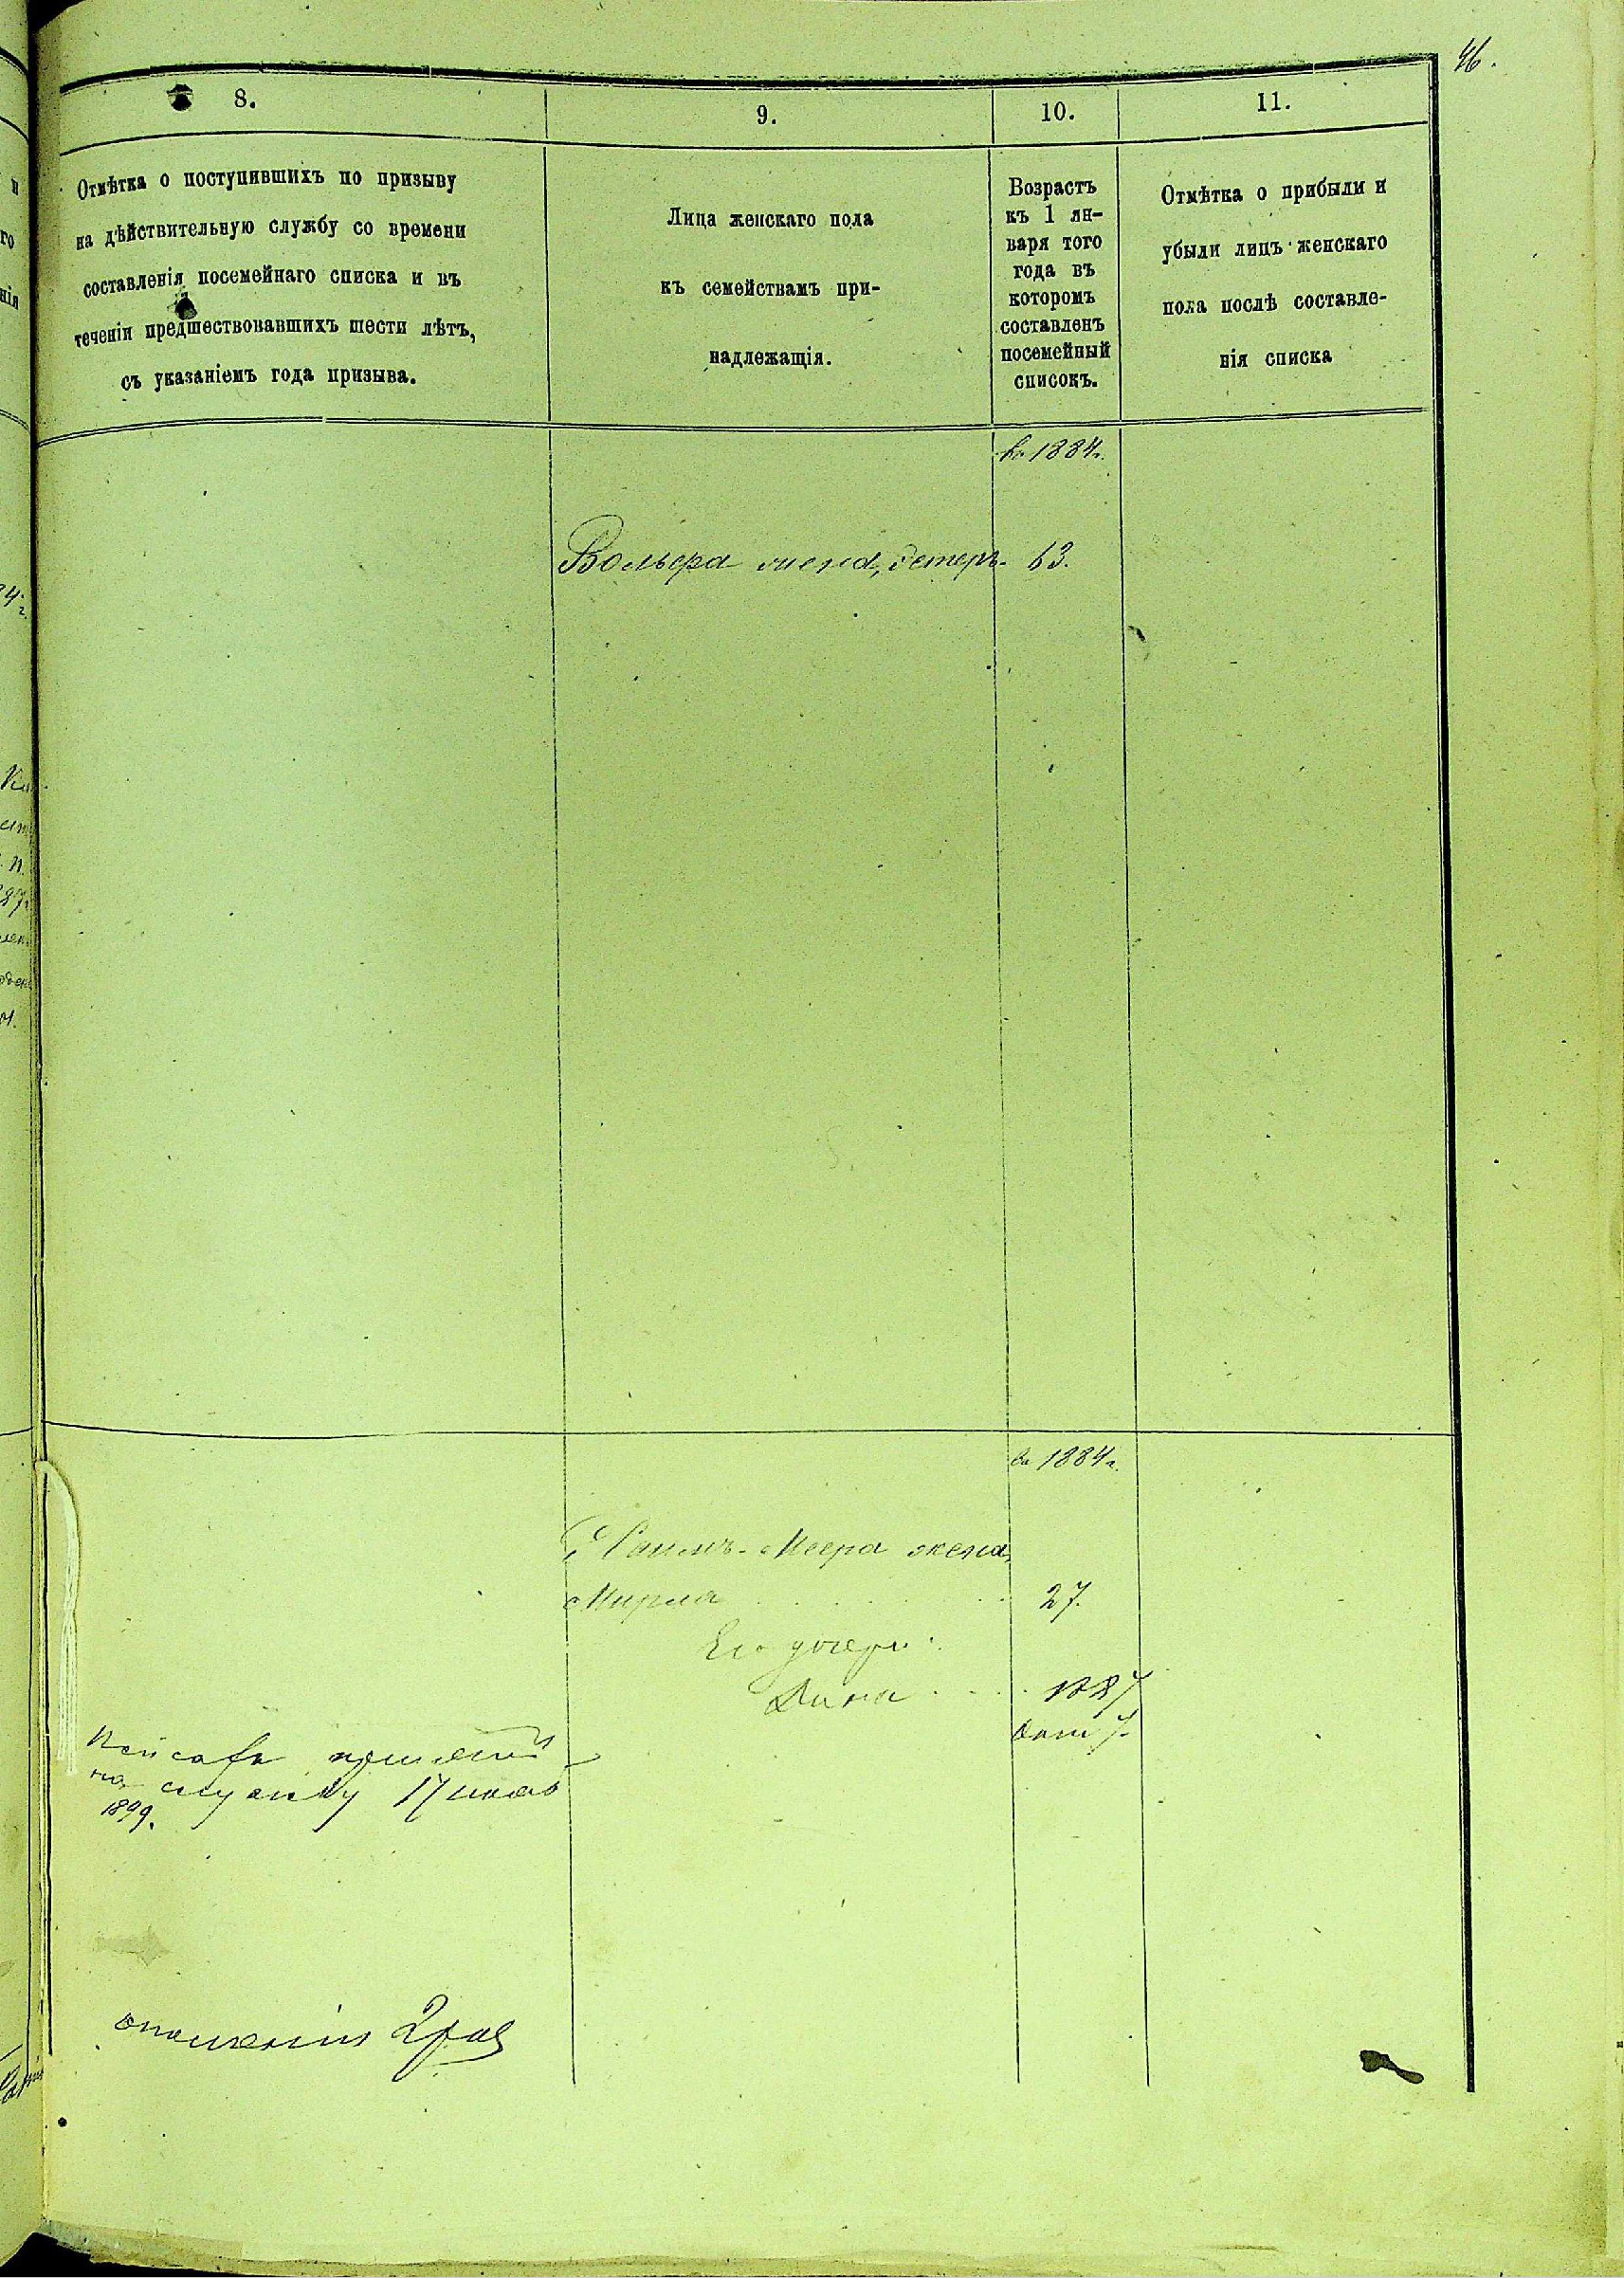 46.
8.
9.
10.
11.
Отмѣтка о поступившихъ по призыву
на дѣйствительную службу со времени
составленія посемейнаго списка и въ
теченіи предшествовавшихъ шести лѣтъ,
съ указаніемъ года призыва.
Лица женскаго пола
къ семействамъ при-
надлежащія.
Возрастъ
къ 1 ян-
варя того
года въ
которомъ
составленъ
посемейный
списокъ.
Отмѣтка о прибыли и
убыли лицъ женскаго
пола послѣ составле-
нія списка
въ 1884г.
Вольфа жена, Эстеръ. 63.
въ 1884г.
Хаимъ-Меера жена,
Мирля 27.
Его дочери:
Дина 1887
на службу 17
1899.